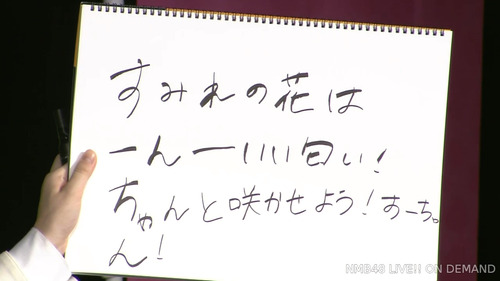 すみれの花は
一ん一いい匂い!
ちゃんと咲かせよう!すーち。
ん!
NMB48 LIVE!! ON DEMAND